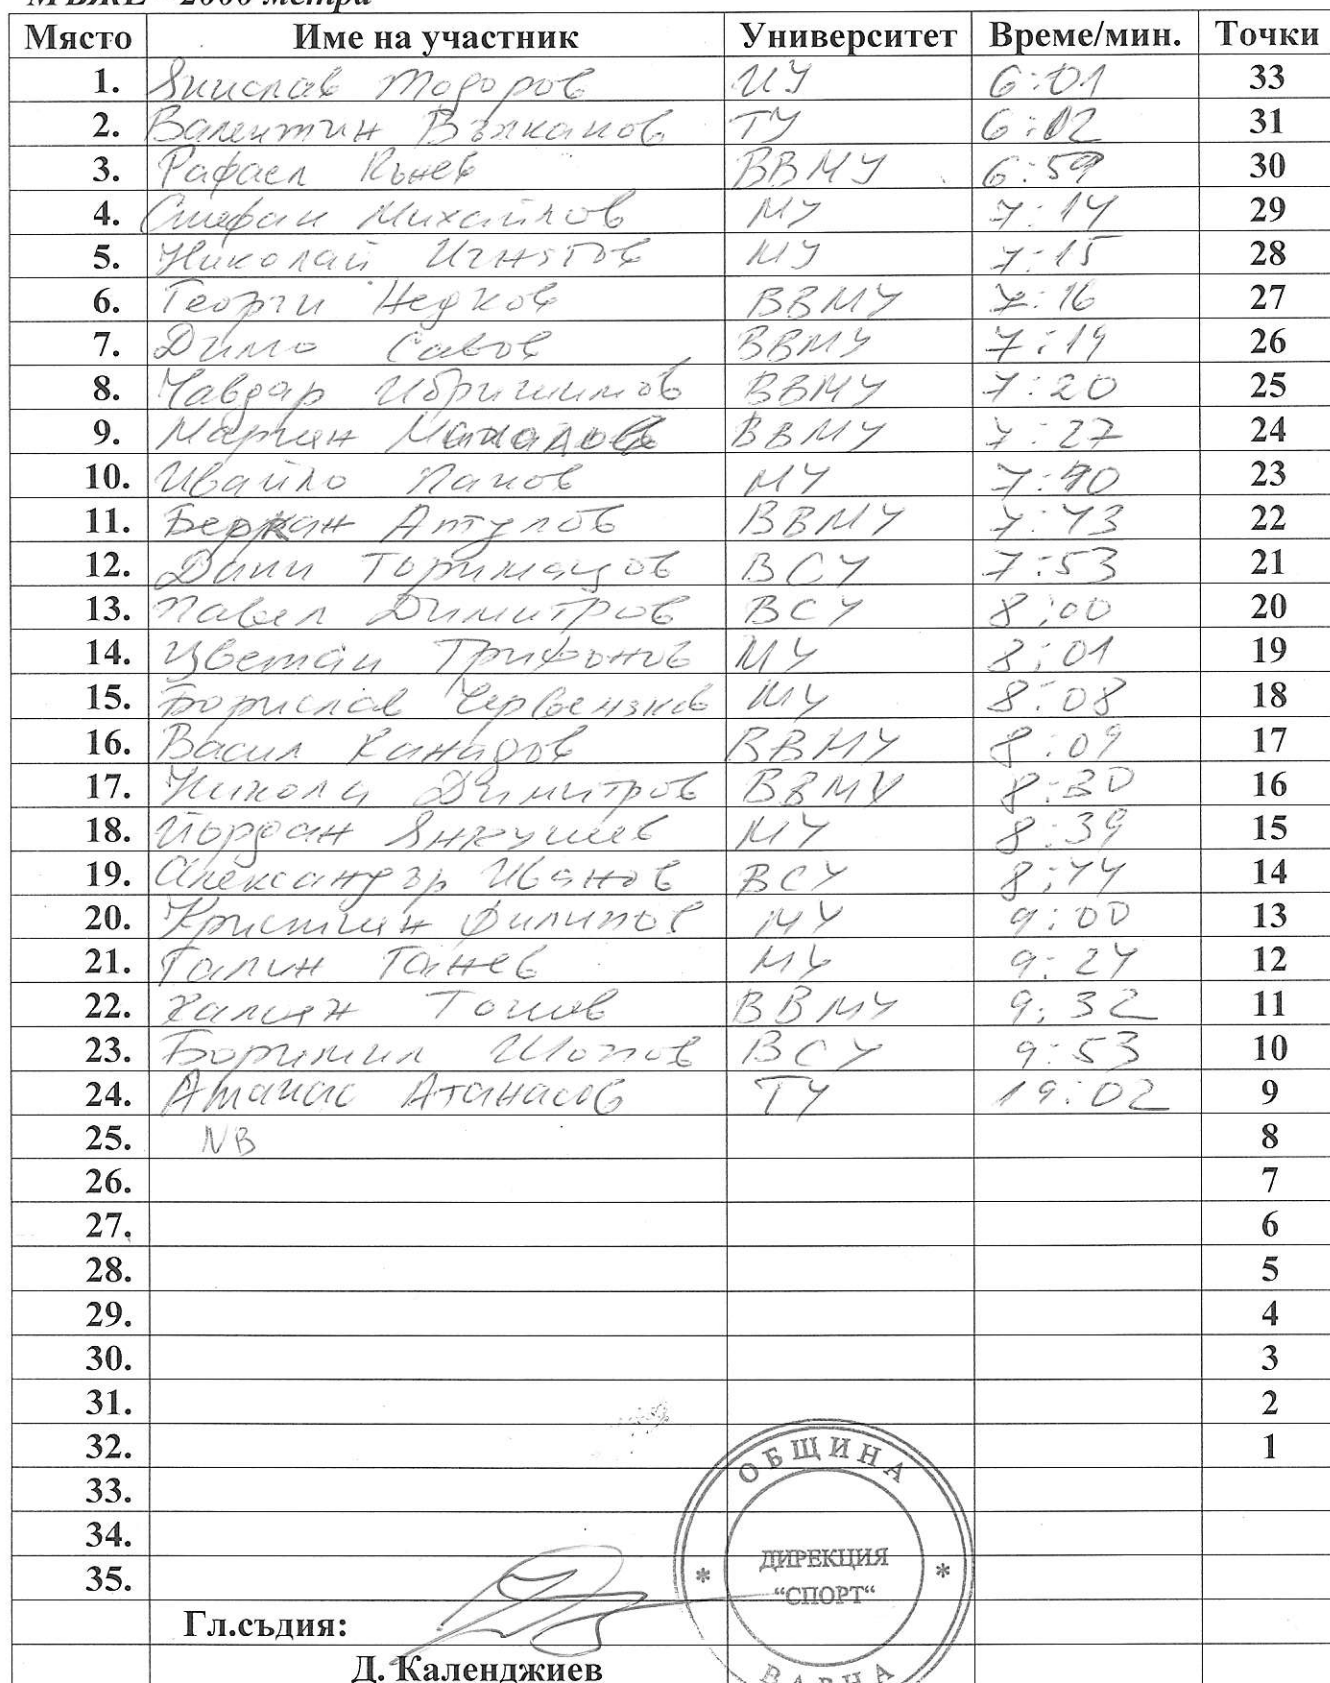 МЪЖЕ - 2000 метра
Място Име на участник Университет Време/мин. Точки
1. Тодоров ИУ 6:01 33
2. Валентин Вълканов ТУ 6:02 31
3. Рафаел Кънев ВВМУ 6:59 30
4. Стефан Михайлов МУ 7:14 29
5. Николай Игнятов МУ 7:15 28
6. Георги Недков ВВМУ 7:16 27
7. Димо Савов ВВМУ 7:19 26
8. Чавдар Ибришимов ВВМУ 7:20 25
9. Мариян ВВМУ 7:27 24
10. Ивайло Панов МУ 7:40 23
11. Беркан ВВМУ 7:43 22
12. Дани ВСУ 7:53 21
13. Павел Димитров ВСУ 8:00 20
14. Цветан Трифонов МУ 8:01 19
15. Борислав Червеняков МУ 8:08 18
16. Васил Канадов ВВМУ 8:09 17
17. Никола Димитров ВВМУ 8:30 16
18. Йордан Янкушев МУ 8:39 15
19. Александър Иванов ВСУ 8:44 14
20. Кристиян Филипов МУ 9:00 13
21. Галин Ганев МУ 9:24 12
22. Калоян Тошев ВВМУ 9:32 11
23. Боримил Шопов ВСУ 9:53 10
24. Атанас Атанасов ТУ 19:02 9
25. NB 8
26. 7
27. 6
28. 5
29. 4
30. 3
31. 2
32. 1
33.
34.
35.
ОБЩИНА
ДИРЕКЦИЯ
“СПОРТ“
ВАРНА
Гл.съдия:
Д. Календжиев